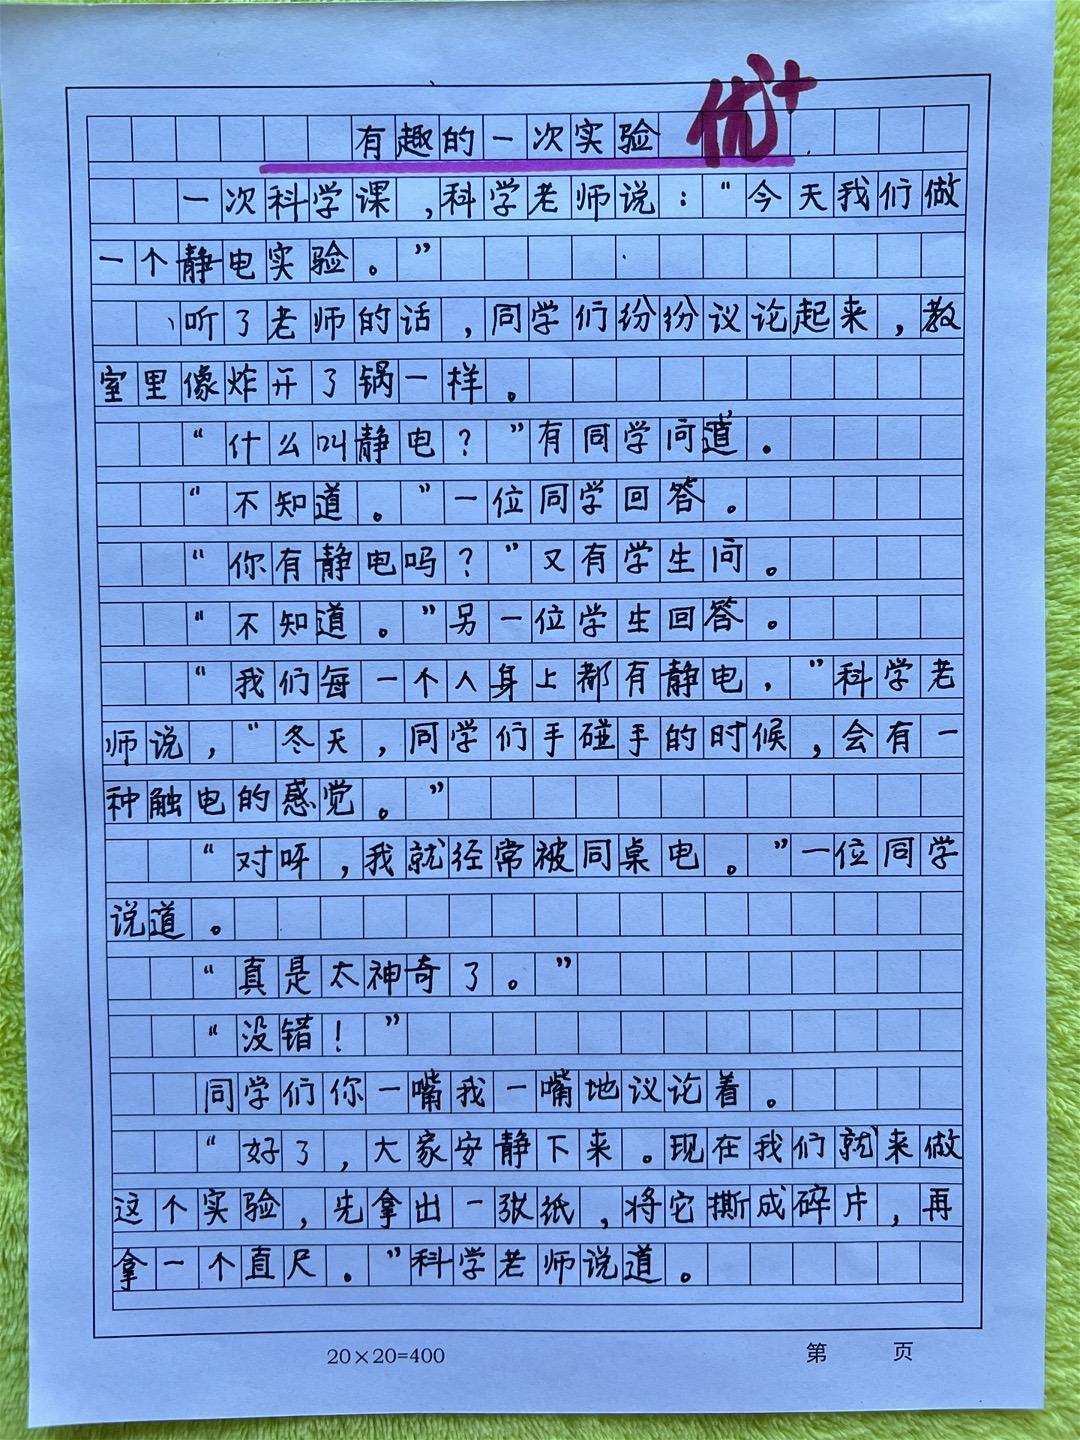 有趣的一次实验 优+
一次科学课，科学老师说：“今天我们做
一个静电实验。”
听了老师的话，同学们纷纷议论起来，教
室里像炸开了锅一样。
“什么叫静电？”有同学问道。
“不知道。”一位同学回答。
“你有静电吗？”又有学生问。
“不知道。”另一位学生回答。
“我们每一个人身上都有静电，”科学老
师说，“冬天，同学们手碰手的时候，会有一
种触电的感觉。”
“对呀，我就经常被同桌电。”一位同学
说道。
“真是太神奇了。”
“没错！”
同学们你一嘴我一嘴地议论着。
“好了，大家安静下来。现在我们就来做
这个实验，先拿出一张纸，将它撕成碎片，再
拿一个直尺。”科学老师说道。
20×20=400 第 页